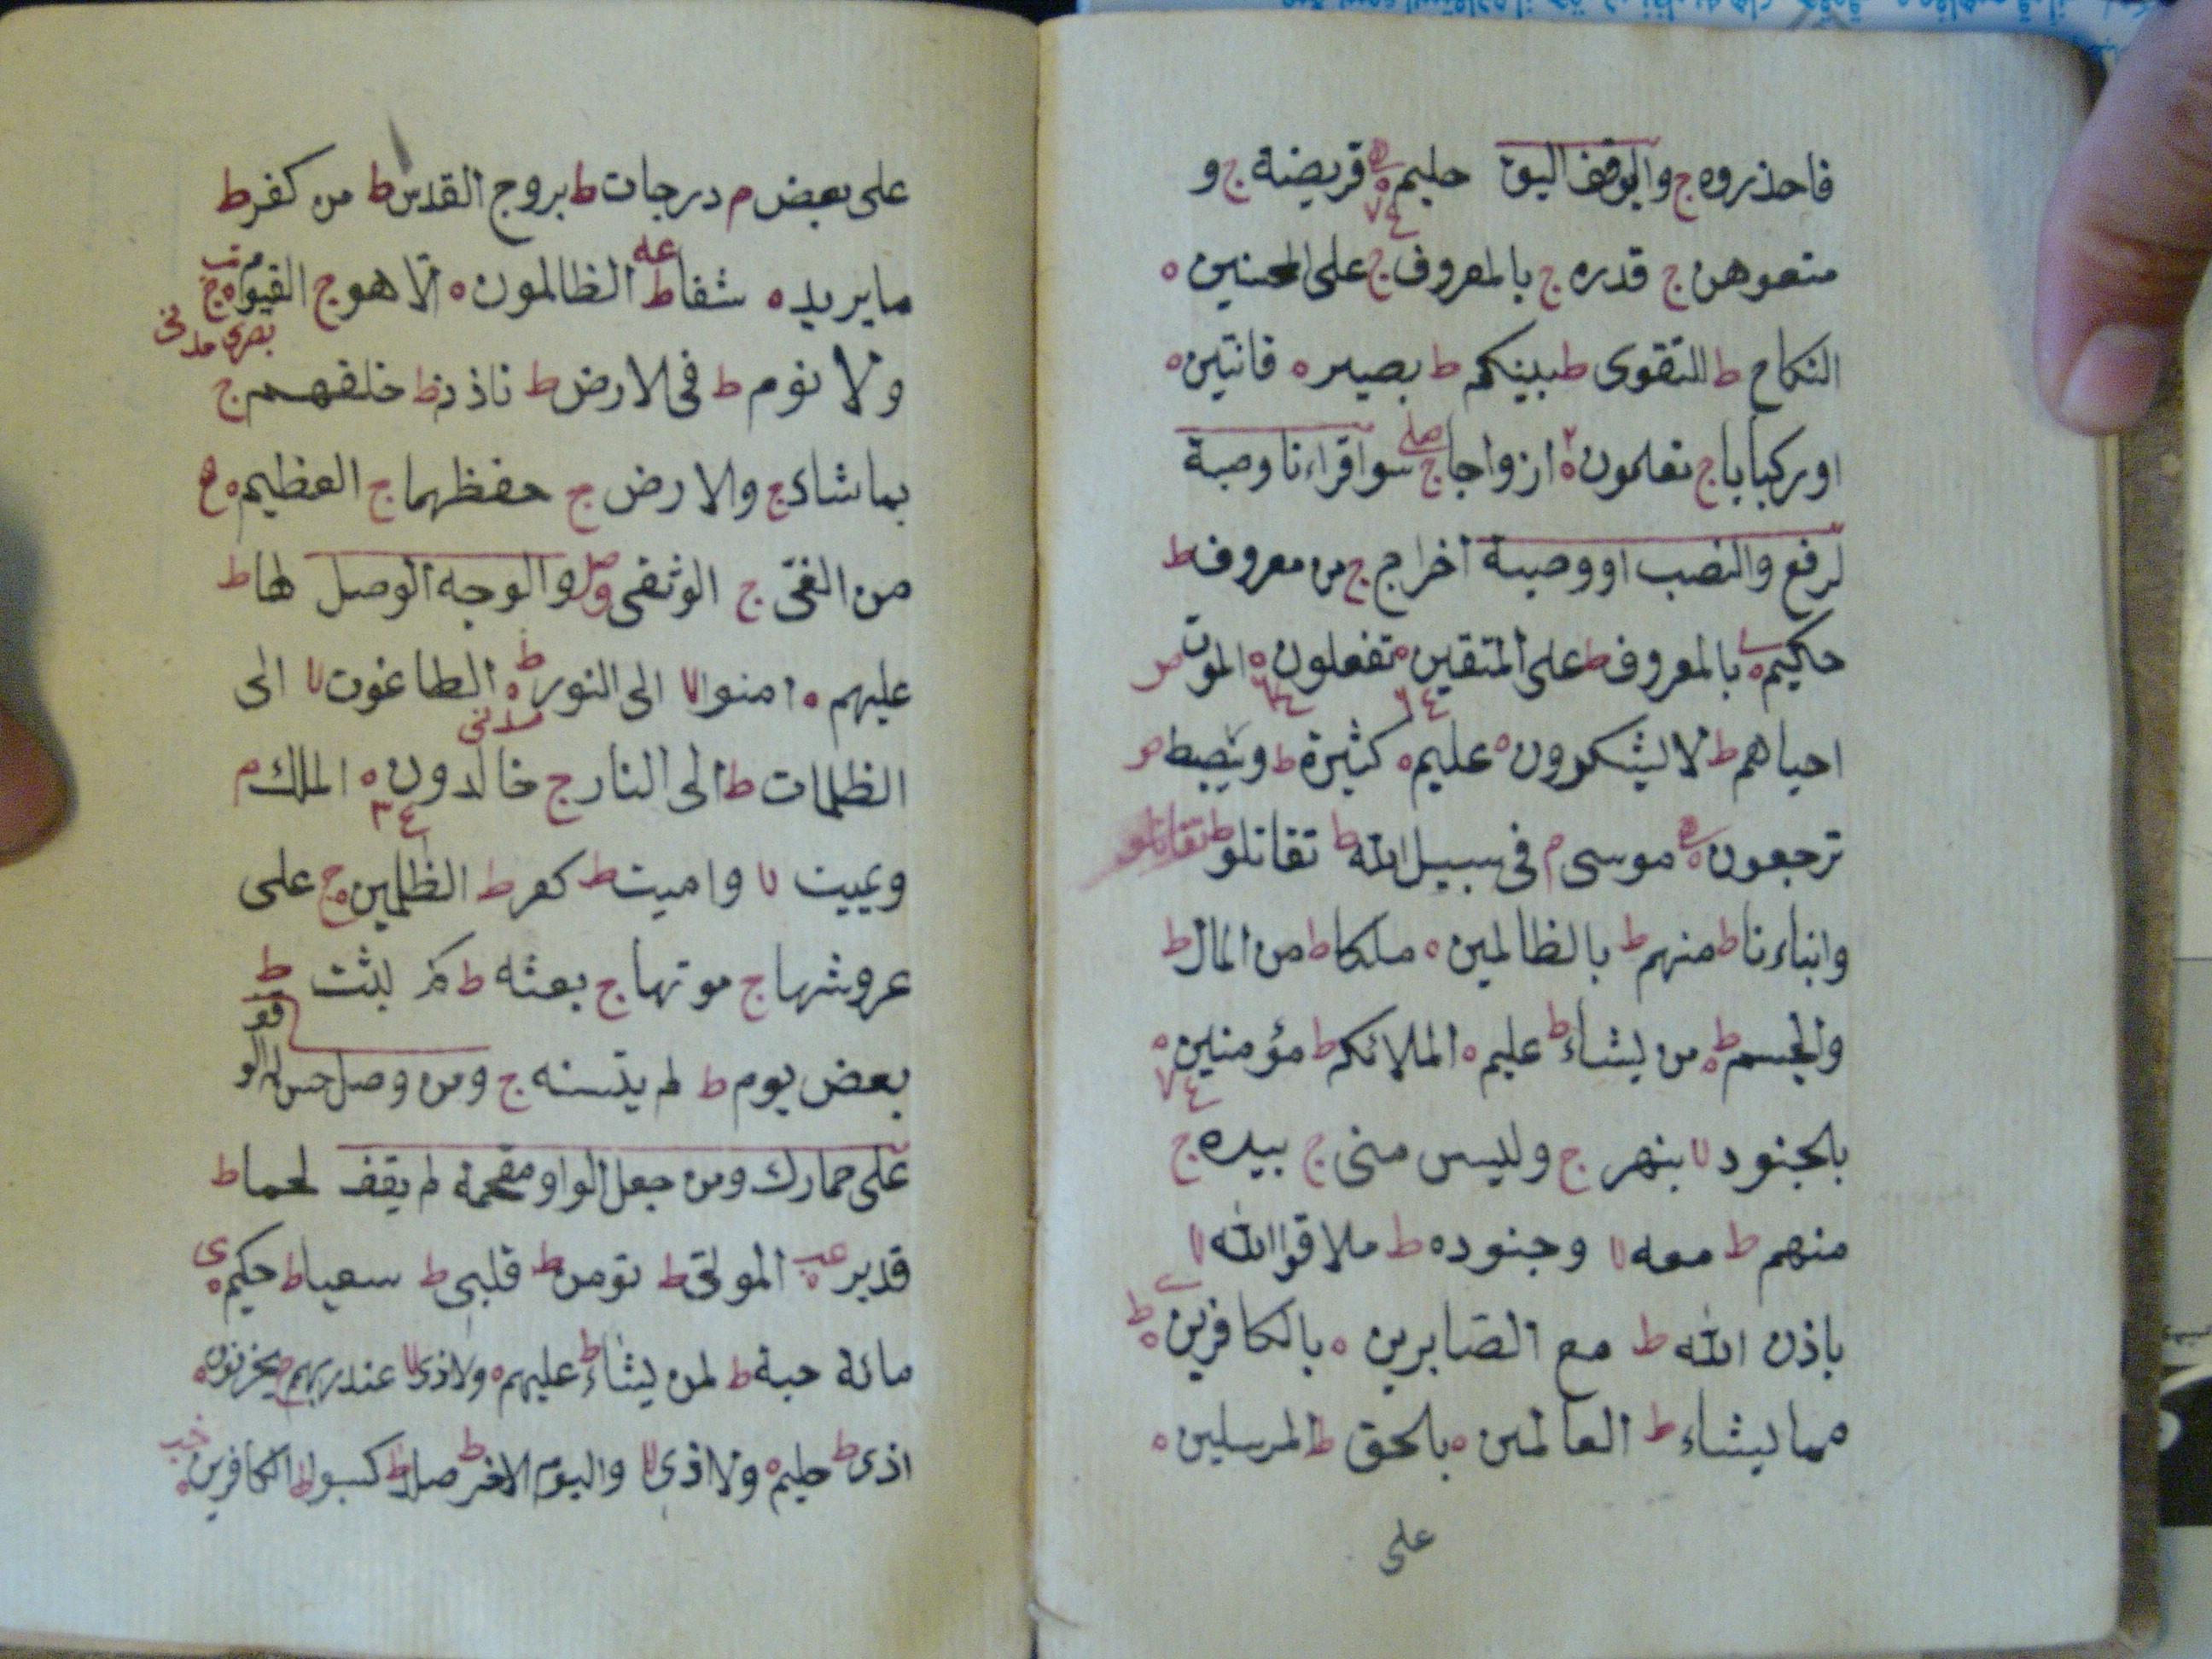 فاحذروه ج والوقف اليق حليم ه فريضة ج و
متعوهن ج قدره ج بالمعروف ج على المحسنين ه
النكاح ط للتقوى ط بينكم ط بصير ه قانتين ه
اوركبابا ج تعلمون ه ازواجا ج سواقراءنا وصية
لرفع والنصب اووصية اخراج ج من معروف ط
حكيم ه بالمعروف ط على المتقين ه تفعلون ه الموت ص
احياهم ط لا يشكرون ه عليم ه كثيرة ط ويبصط ص
ترجعون ه موسى م فى سبيل الله ط تقاتلو ط تقاتلو
وابناءنا ط منهم ط بالظالمين ه ملكا ط من المال ط
والجسم ط ه من يشاء ط عليم ه الملائكه ط مؤمنين ه
بالجنود لا بنهر ج وليس منى ج بيده ج
منهم ط معه لا وجنوده ط ملاقوا الله لا
باذن الله ط مع الصابرين ه بالكافرين ه ط
مما يشاء ط العالمين ه بالحق ط المرسلين ه
على
على بعض م درجات ط بروح القدس ط من كفر ط
ما يريد ه شفاعه ط الظالمون ه الا هو ج القيوم ه ج
بصرى مدنى
ولا نوم ط فى الارض ط ناذنه ط خلفهم ج
بماشاء ج والارض ج حفظهما ج العظيم ه
من الغى ج الوثقى والوجه الوصل لها ط
عليهم ه امنوا لا الى النور ه ط الطاغوت لا الى
مدنى
الظلمات ط الى النار ج خالدون ه الملك م
ع ٣
ويميت لا واميت ط كفر ط الظلمين ه ج على
عروشها ج موتها ج بعثه ط كم لبثت ط
بعض يوم ط لم يتسنه ج ومن وصل حسن له الوقف
على حمارك ومن جعل الواو مقحمة لم يقف لحما ط
قدير ه الموتى ط تومن ط قلبى ط سعيا ط حكيم ه
مائة حبة ط لمن يشاء ط عليهم ه ولا اذى لا عند ربهم ج يحزنون ه
اذى ط حليم ه ولا اذى لا واليوم الاخر ط صلدا ط كسبوا ط الكافرين ه